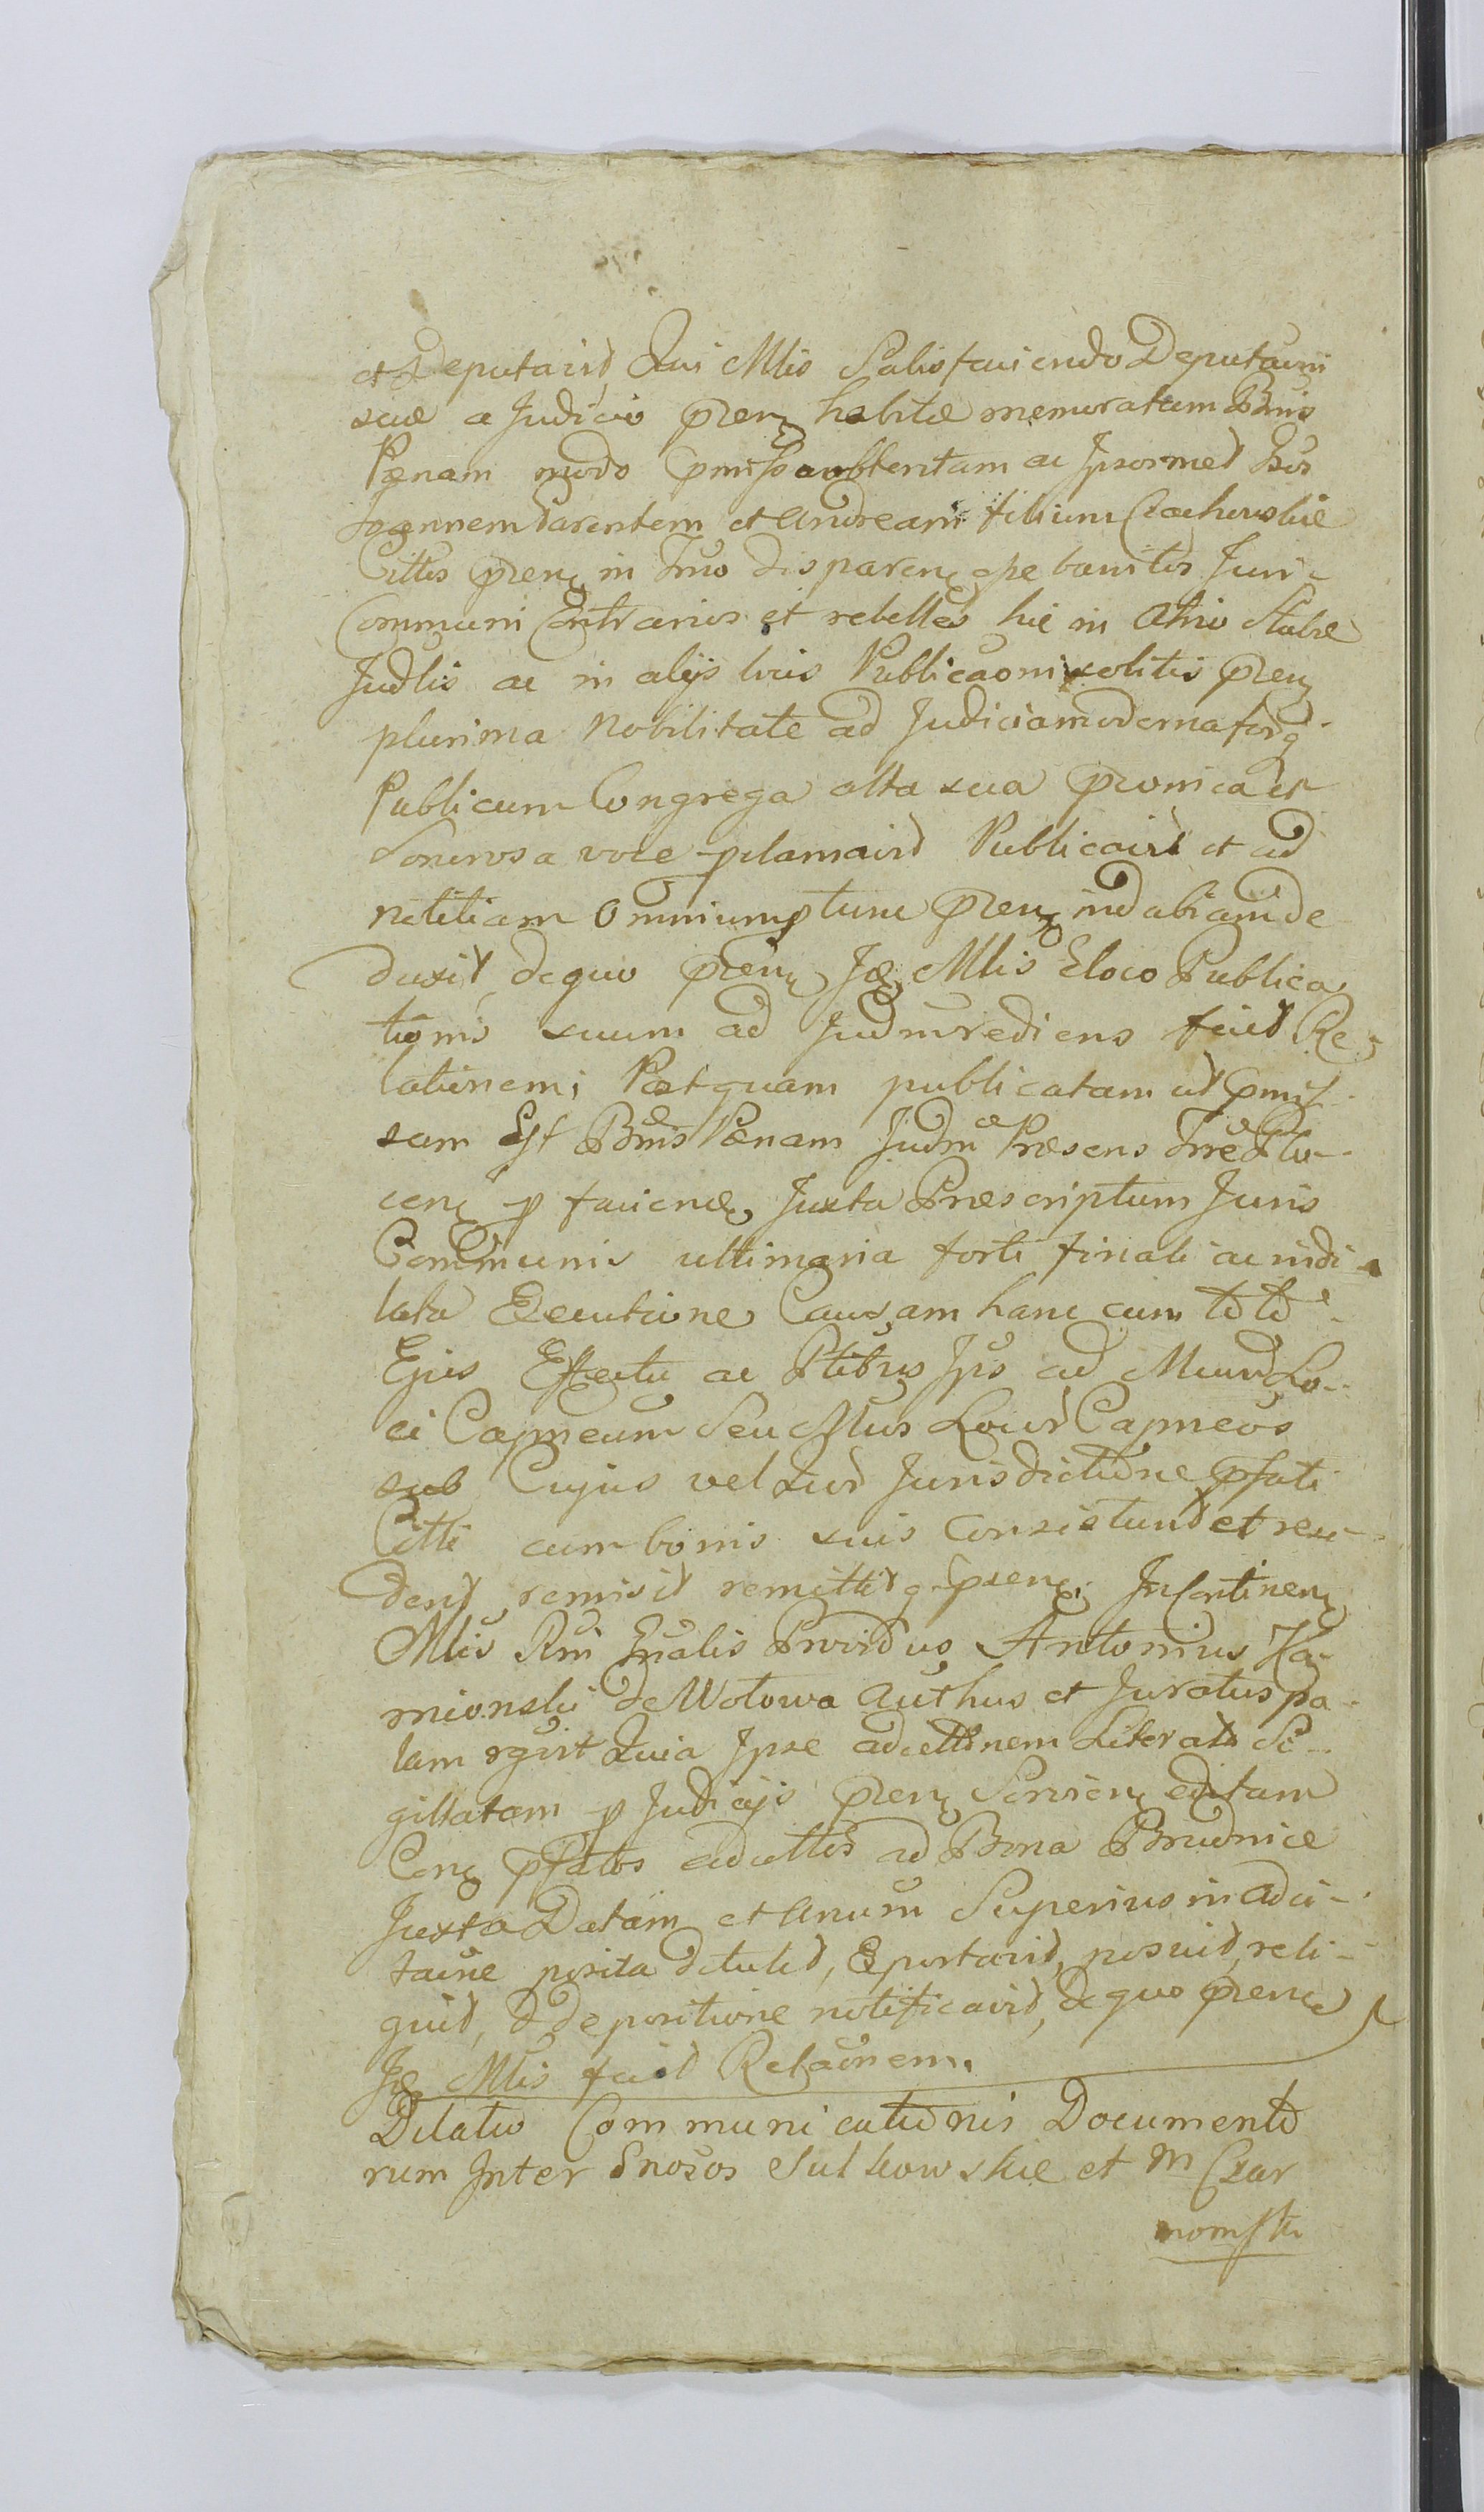 et Deputavit, Qui Mlis Satisfaciendo Deputaõni
suæ a Judicio præn habitæ memoratam Bnis
Pænam modo pmisso obtentam ac Ipsosmet Gsos
Joannem Parentem et Andream filium Czachowskie
Cittos præn in Tmo disparen ope banitos Juri
Communi Contrarios et rebelles hic in Atrio Stubæ
Judlis ac in alijs locis Publicaoni solitis præn
plurima Nobilitate ad Judicia moderna forq
Publicum Congrega alta sua pronica et
Sonorosa voce pclamavit Publicavit et ad
notitiam Omnium tunc præn indubiam de
duxit, de quo præn Jdem Mlis Eloco Publica
tionis suum ad Judm rediens fecit Re
lationem; Postquam publicatam ut pmis
sam Est Bnis Pænam Judm Præsens Trre Plo
cen p facienda Juxta Præscriptum Juris
Communis ultimaria forti finali ac indi
lata Executione Causam hanc cum toto
Ejus Effectu ac Ptibus Ips ad Mund Lo
ci Capneum Seu Mlus Locor Capneos
sub Cujus vel quor Jurisdictione pfati
Citti cum bonis suis Consistunt et resi
dent, remisit remittitq præn; In Continen
Mlis Rni Gnalis Providus Antonius Ka
mionski de Wolowa Authus et Juratus pa
lam rgvit Quia Ipse adcittõnem Literat Si
gillatam p Judicijs præn Servien editam
Con pfatos adcittos ad Bona Brudnice
Juxta Datam et Anum Superius in adci
taõne posita detulit, Exportavit, posuit, reli
quit, & depositione notificavit, de quo præn
Jd Mlis fecit Relaõnem.
Dilatio Communicationis Documento
rum Inter Gnosos Sulkowskie et M Czar
nomski